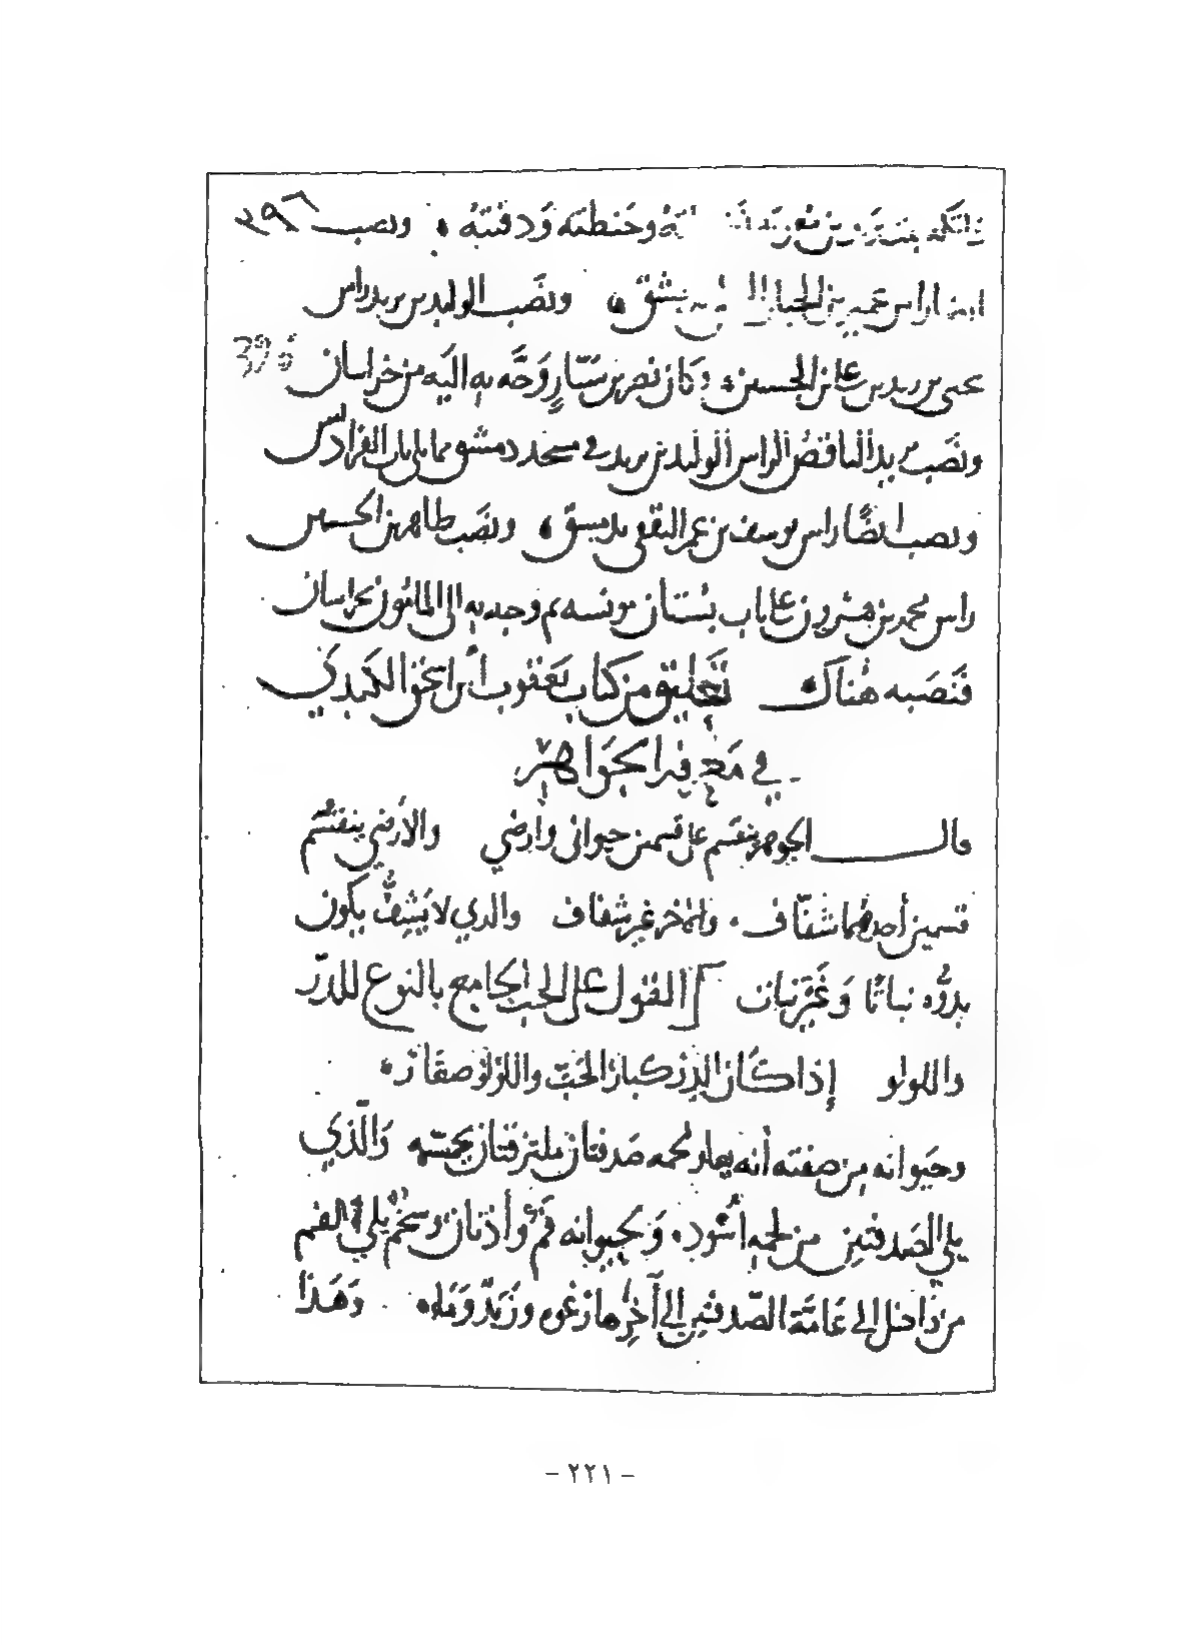 عاتكة بنت يزيد بن معوية وحنطته ودفنته ونصب ٣٩٦
ايضا راس عمير بن الحباب بدمشق ونصب الوليد بن يزيد راس
يحيى بن زيد بن علي بن الحسين وكان نصر بن سيّار وجّه به اليه من خراسان 396
ونصب يزيد الناقص الراس الوليد بن يزيد في مسجد دمشق مما يلي باب الفراديس
ونصب ايضا راس يوسف بن عمر الثقفي بدمشق ونصب طاهر بن الحسين
راس محمد بن هرون على باب بستان مونسه ثم وجه به الى المامون بخراسان
فنصبه هناك تعليق من كتاب يعقوب ابن اسحق الكندي
في معرفة الجواهر
قال الجوهر ينقسم على قسمين حيواني وأرضي والأرضي ينقسم
قسمين أحدهما شفّاف والاخر غير شفاف والذي لا يشِفّ يكون
بدوّه نباتًا وَغَير نبات القول على الحب الجامع بالنوع للدرّ
واللولو إذا كان الدر كبار الحبّ واللولو صغار
وحيوانه من صفته أنه لحمه صدفتان ملتزقتان بجسمه وَالّذي
يلي الصدفتين من لحمه أسود وَلحيوانه فم وأذنان وسحم يلي الفم
من داخل إلى عامّة الصّدفتين إلى آخرهما وزبد وَماء وَهَذا
- ٢٢١ -